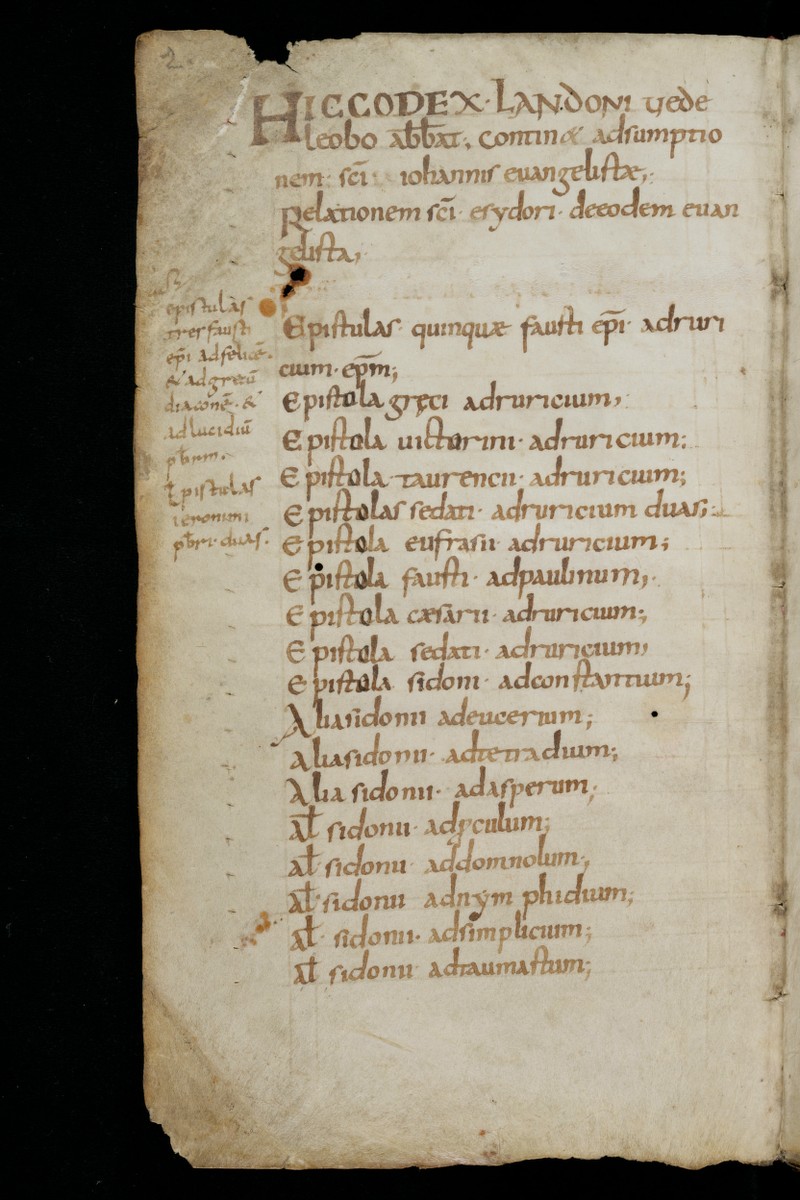 2
HIC CODEX · LANDONI vede
leobo abbat, contin& adsumptio
nem · sc̄i · iohannis euangelistae,
Relationem sc̄i · esydori · deeodem euan
gelista,
epistulas
tres fausti
ep̄i ad felicē
& ad grecū
diaconē · &
ad lucidiū
pb̄rm.
Epistulas
ieronimi
pb̄ri · duas.
Epistulas quinquae fausti ep̄i adruri
cium · ep̄m;
Epistola gręci adruricium,
Epistola uictorini · adruricium;
Epistola taurencii · adruricium;
Epistolas sedati · adruricium duas;
Epistola eufrasii adruricium;
Epistola fausti · adpaulinum,
Epistola cæsarii · adruricium;
Epistola sedati · adruricium,
Epistola sidoni · adconstantium;
Alia sidonii adeucerium;
Alia sidonii · adtetradium;
Alia sidonii · adasperum,
Aƚ sidonii adproculum;
Aƚ sidonii addomnolum;
Aƚ sidonii adnymphidium;
Aƚ sidonii · adsimplicium;
Aƚ sidonii adtaumastum;